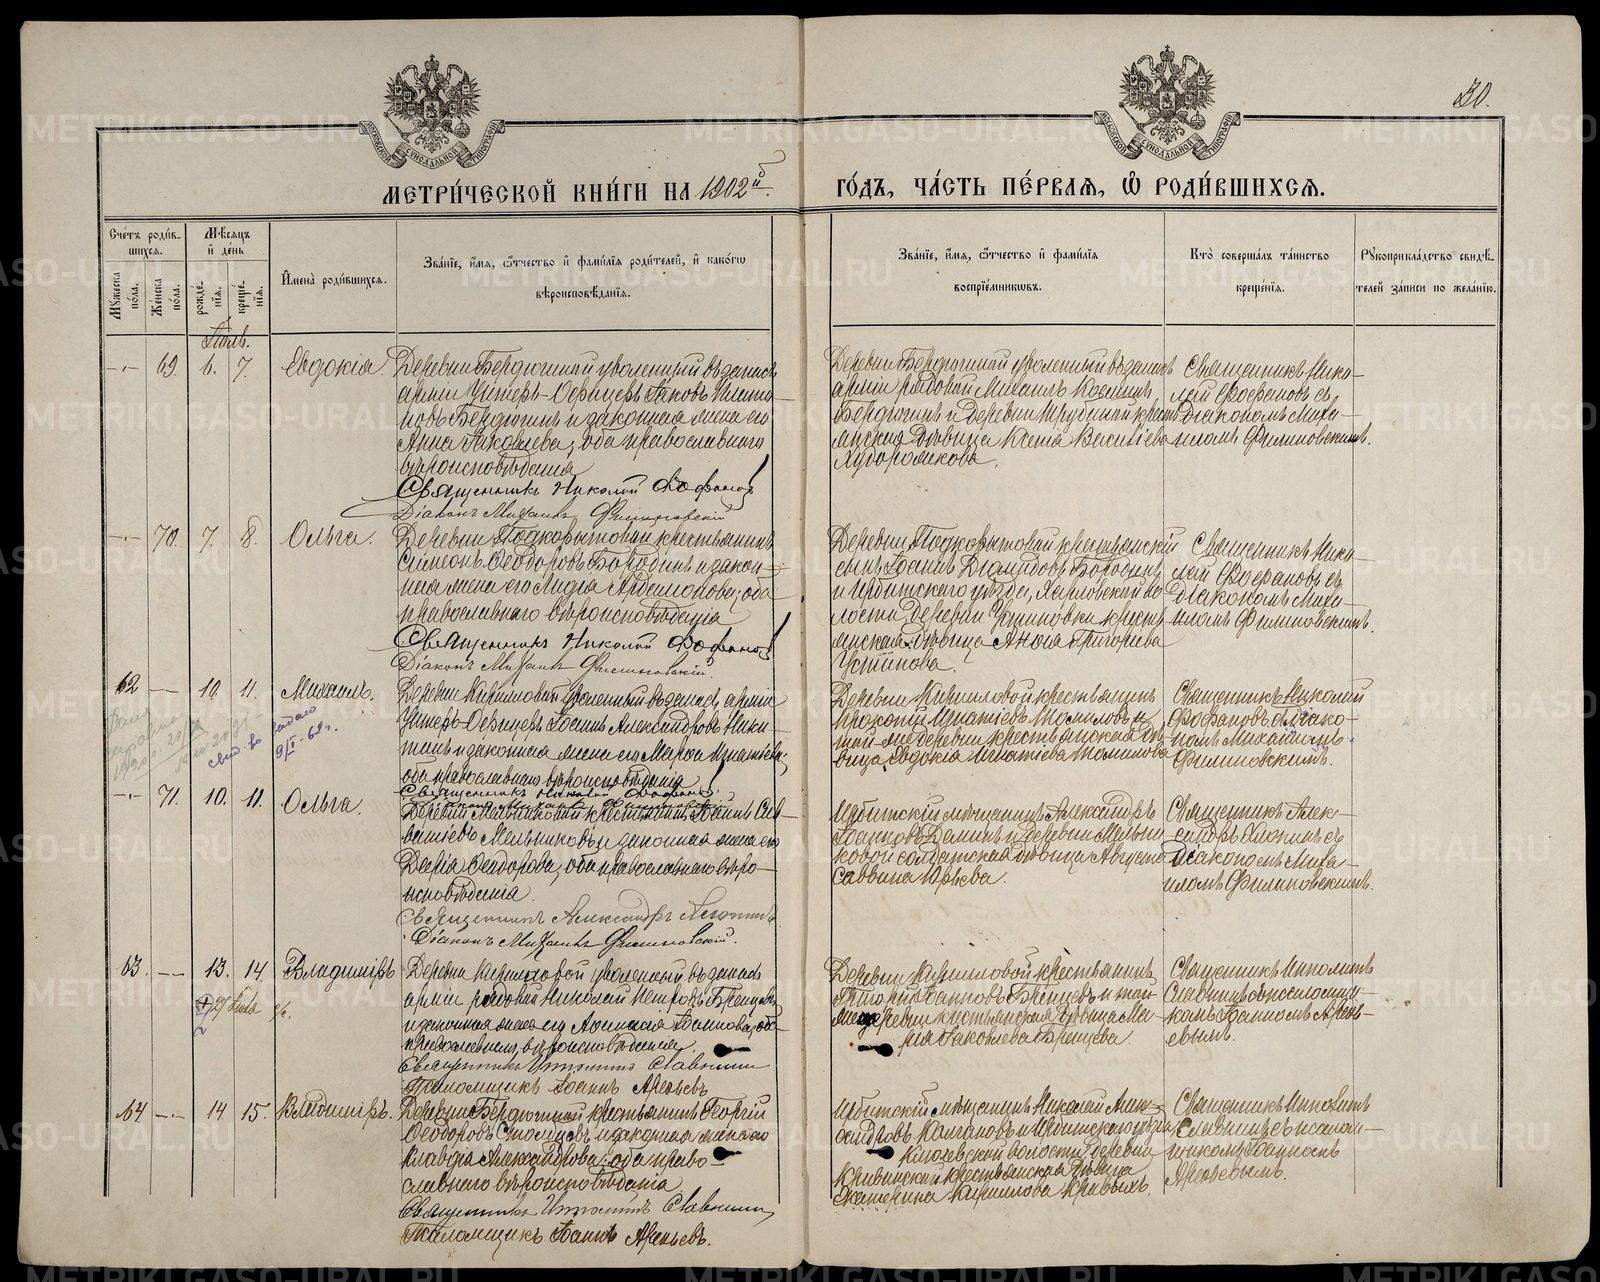 30.
МЕТРИ́ЧЕСКОЙ КНИ́ГИ НА 1902й
ГО́ДЪ, ЧА́СТЬ ПЕ́РВАѦ, Ѽ РОДИ́ВШИХСѦ.
Сче́тъ роди́в-
шихся.
Му́жеска по́ла.
Же́нска по́ла.
Мѣ́сяцъ и де́нь
рожде́-нія.
креще́-нія.
Имена̀ роди́вшихся.
Зва́ніе, и́мя, о́тчество и фами́лія роди́телей, и како́гѡ
вѣроисповѣ́данія.
Зва́ніе, и́мя, о́тчество и фами́лія
воспріе́мниковъ.
Кто̀ соверша́лъ та́инство
креще́нія.
Рукоприкла́дство свидѣ́-
телей за́писи по жела́нію.
Іюль.
69. 6. 7. Евдокія.
Деревни Бердюгиной уволенный въ запасъ
арміи Унтеръ-Офицеръ Іаковъ
Бердюгинъ и законная жена его
Анна Іаковлева, оба православнаго
вѣроисповѣданія
Священникъ Николай Фофановъ
Діаконъ Михаилъ Филиповскій
Деревни Бердюгиной уволенный въ запасъ
арміи рядовой Михаилъ
Бердюгинъ и деревни крестъ
янская дѣвица Ксенія
Худорожкова.
Священникъ Нико-
лай Фофановъ съ
діакономъ Миха-
иломъ Филиповскимъ.
70. 7. 8. Ольга.
Деревни Подкорытовой крестьянинъ
Симеонъ Ѳеодоровъ Бородинъ и закон-
ная жена его Лидія Ардалионова, оба
православнаго вѣроисповѣданія
Священникъ Николай Фофановъ
Діаконъ Михаилъ Филиповскій.
Деревни Подкорытовой крестьянскій
сынъ Іоаннъ Бородинъ
и Ирбитскаго уѣзда, во-
лости деревни Устиновки кресть
янская дѣвица Анна Григориева
Устинова.
Священникъ Нико-
лай Фофановъ съ
діакономъ Миха-
иломъ Филиповскимъ.
62 10. 11. Михаилъ.
Деревни Кириловой уволенный въ запасъ арміи
Унтеръ-Офицеръ Іосифъ Александровъ Ники-
тинъ и законная жена его Марѳа Игнатіева;
оба православнаго вѣроисповѣданія
Священникъ Николай Фофановъ
9/I-62г.
Деревни Кириловой крестьянинъ
Прокопій Игнатіевъ Томиловъ и
той-же деревни крестьянская дѣ-
вица Евдокія Игнатіева Томилова
Священникъ Николай
Фофановъ съ діако-
номъ Михаиломъ
Филиповскимъ.
71. 10. 11. Ольга.
Деревни Мельниковой крестьянинъ Іоаннъ Сав-
ватіевъ Мельниковъ и законная жена его
Дарія Ѳеодорова, оба православнаго вѣро-
исповѣданія.
Священникъ Александръ
Діаконъ Михаилъ Филиповскій.
Ирбитскій мѣщанинъ Александръ
Іоанновъ и деревни Мельни-
ковой солдатская дѣвица Августа
Саввина Юрьева.
Священникъ Алек-
сандръ съ
діакономъ Миха-
иломъ Филиповскимъ.
63. 13. 14. Владиміръ
Деревни Кириловой уволенный въ запасъ
арміи рядовой Николай Петровъ Бренцевъ
и законная жена его Аѳанасія Іоаннова, оба
православнаго вѣроисповѣданія
Священникъ Ипполитъ Славнинъ
Псаломщикъ Іоаннъ Арефьевъ
Деревни Кириловой крестьянинъ
Григорій Іоанновъ Бренцевъ и той-
же деревни крестьянская дѣвица Ма-
рія Іаковлева Бренцева
Священникъ Ипполитъ
Славнинъ съ псаломщи-
комъ Іоанномъ Арефь-
евымъ.
64. 14 15. Владиміръ.
Деревни Бердюгиной крестьянинъ Георгій
Ѳеодоровъ Столбцевъ и законная жена его
Клавдія Александрова, оба право-
славнаго вѣроисповѣданія
Священникъ Ипполитъ Славнинъ
Псаломщикъ Іоаннъ Арефьевъ.
Ирбитскій мѣщанинъ Николай Алек-
сандровъ Колгановъ и Ирбитскаго уѣзда
Ключевской волости деревни
Кривинской крестьянская дѣвица
Екатерина Кирилова Кривыхъ.
Священникъ Ипполитъ
Славнинъ съ псалом-
щикомъ Іоанномъ
Арефьевымъ.
METRIKI.GASO-URAL.RU